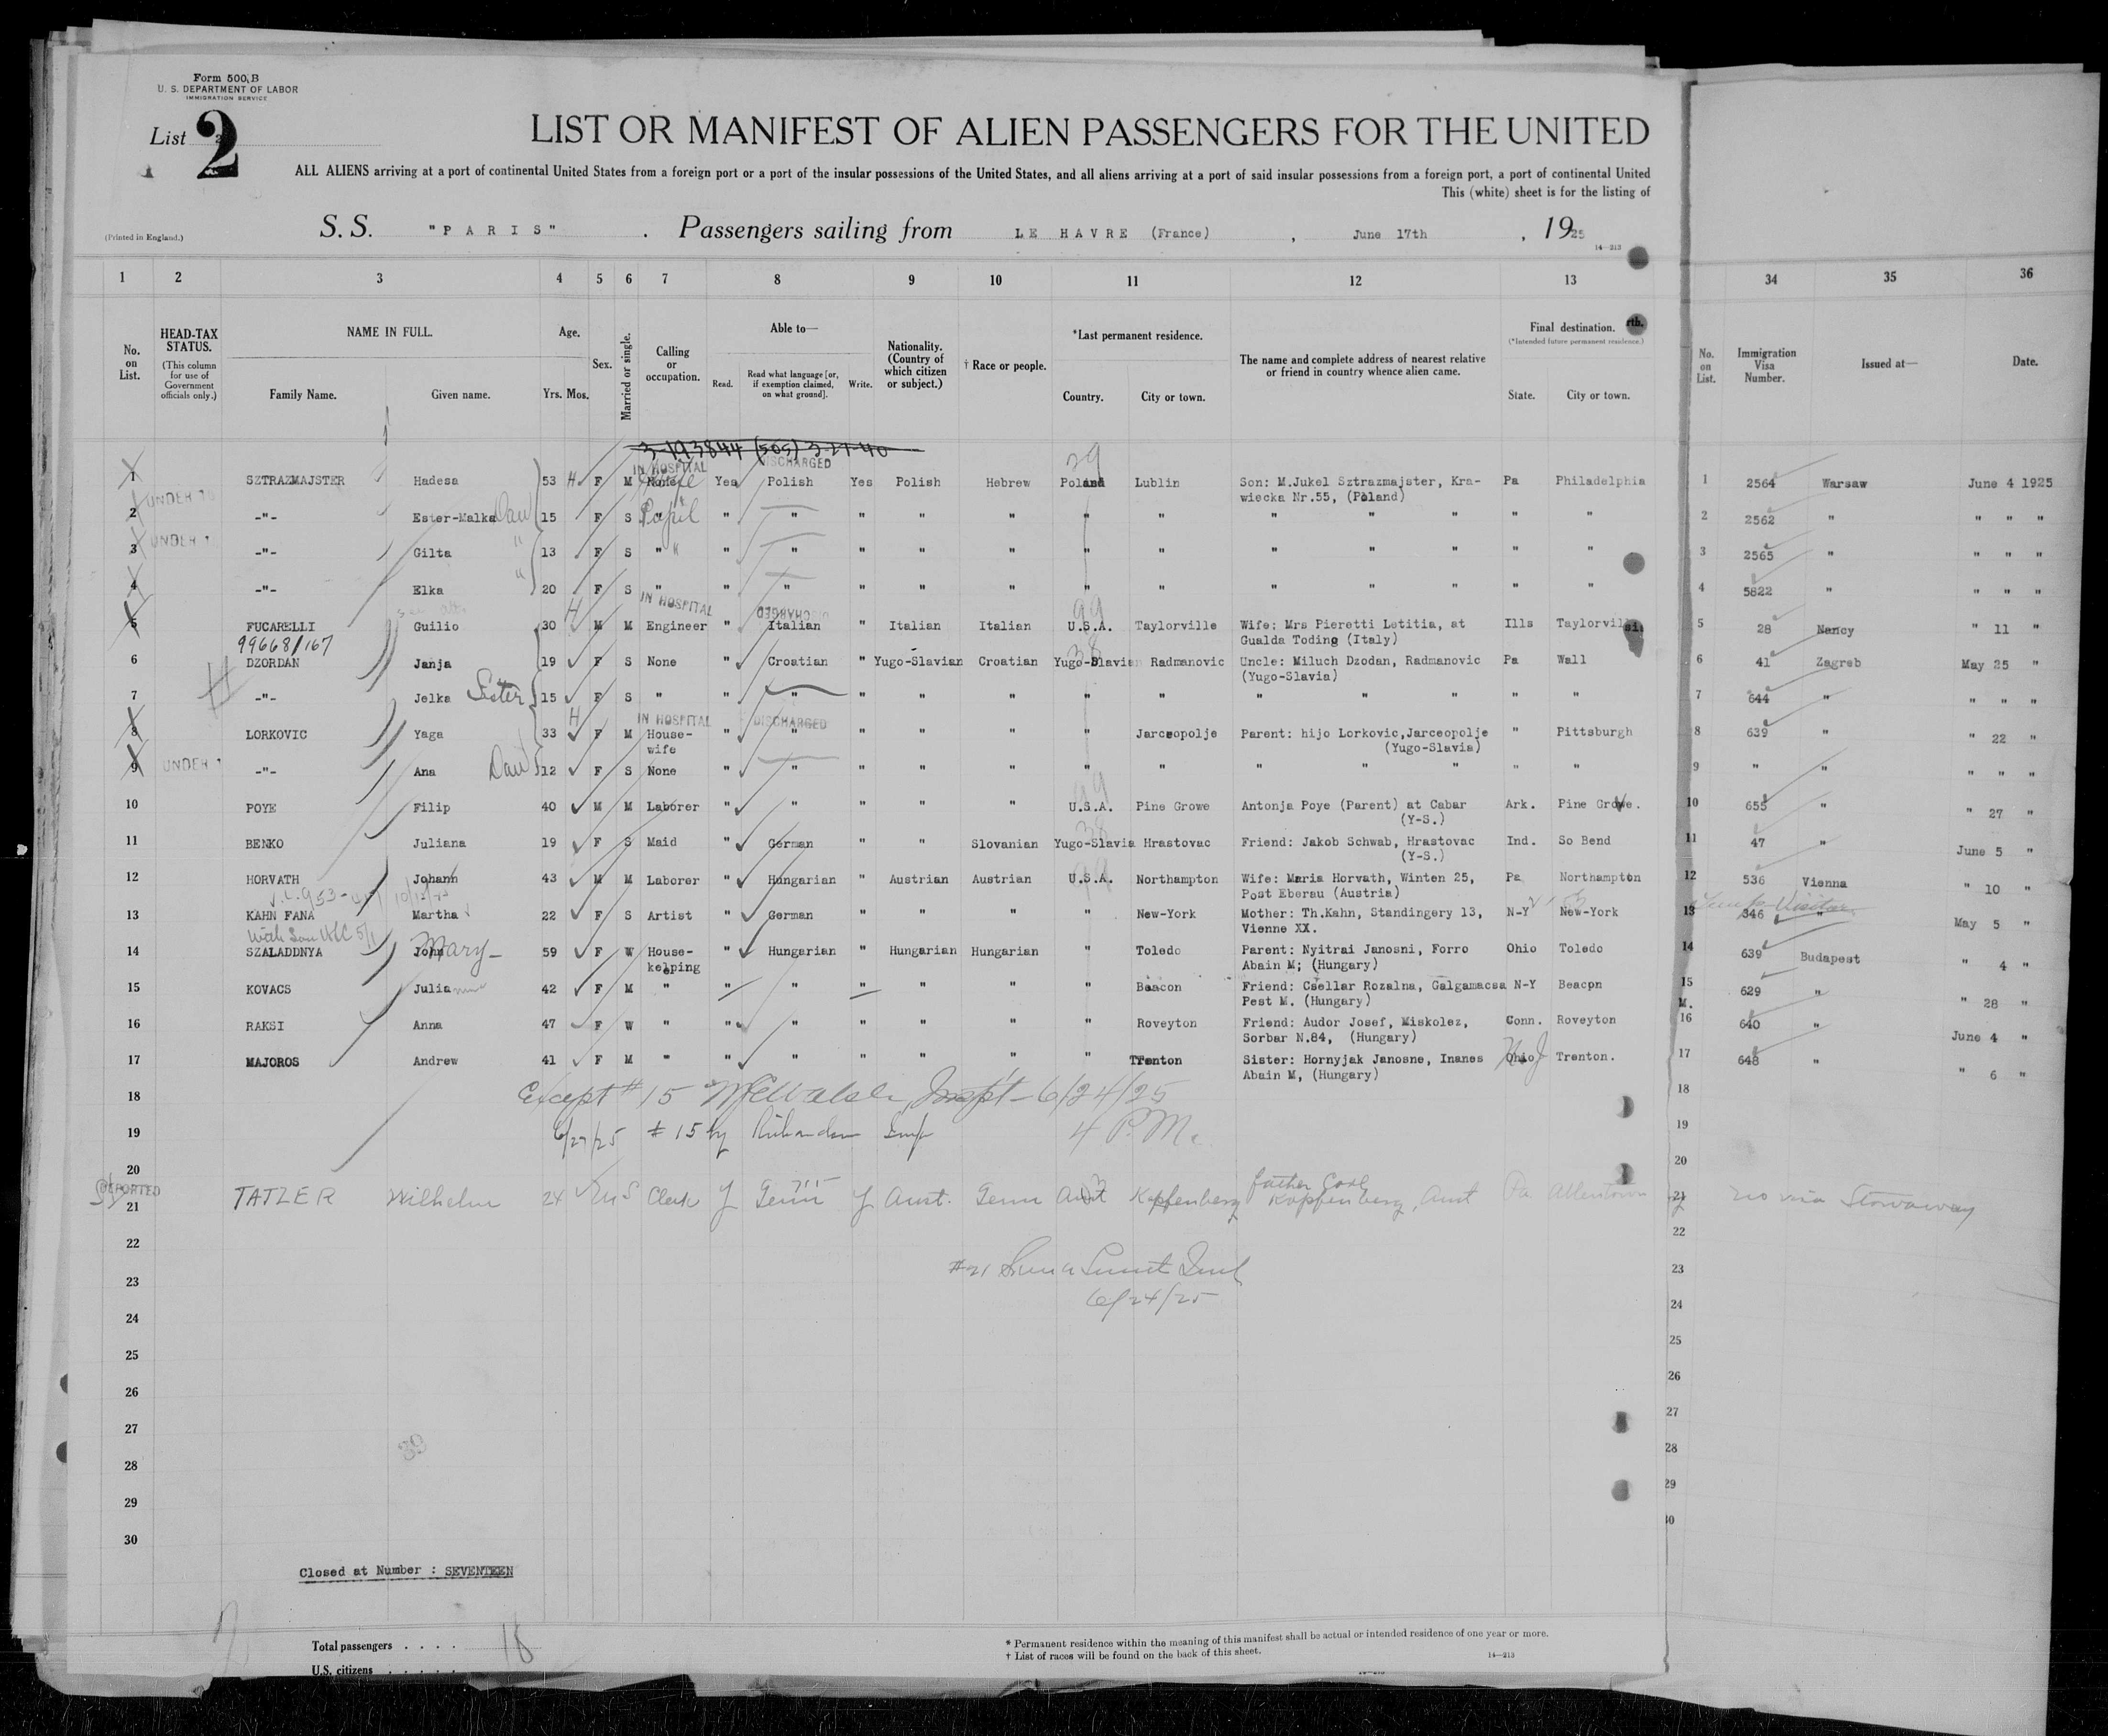 Form 500 B
U. S. DEPARTMENT OF LABOR
IMMIGRATION SERVICE
List 2
LIST OR MANIFEST OF ALIEN PASSENGERS FOR THE UNITED
ALL ALIENS arriving at a port of continental United States from a foreign port or a port of the insular possessions of the United States, and all aliens arriving at a port of said insular possessions from a foreign port, a port of continental United
This (white) sheet is for the listing of
(Printed in England.)
S. S. "PARIS" . Passengers sailing from LE HAVRE (France) , June 17th , 1925
14—213
1 2 3 4 5 6 7 8 9 10 11 12 13 34 35 36
No. on List.
HEAD-TAX STATUS.
(This column for use of Government officials only.)
NAME IN FULL.
Family Name. Given name.
Age.
Yrs. Mos.
Sex.
Married or single.
Calling or occupation.
Able to—
Read. Read what language [or, if exemption claimed, on what ground]. Write.
Nationality. (Country of which citizen or subject.)
† Race or people.
*Last permanent residence.
Country. City or town.
The name and complete address of nearest relative or friend in country whence alien came.
Final destination.
(*Intended future permanent residence.)
State. City or town.
No. on List.
Immigration Visa Number.
Issued at—
Date.
3-193844 (505) 3-21-40
IN HOSPITAL DISCHARGED 29
1 SZTRAZMAJSTER Hadesa 53 H F M None Yes Polish Yes Polish Hebrew Poland Lublin Son: M.Jukel Sztrazmajster, Kra- Pa Philadelphia 1 2564 Warsaw June 4 1925
wiecka Nr.55, (Poland)
UNDER
2 -"- Ester-Malka Dau 15 F S Pupil " " " " " " " " " " " " 2 2562 " " " "
UNDER
3 -"- Gilta " 13 F S " " " " " " " " " " " " " 3 2565 " " " "
4 -"- Elka " 20 F S " " " " " " " " " " " " " 4 5822 " " " "
H IN HOSPITAL DISCHARGED 99
5 FUCARELLI Guilio 30 M M Engineer " Italian " Italian Italian U.S.A. Taylorville Wife: Mrs Pieretti Letitia, at Ills Taylorville 5 28 Nancy " 11 "
Gualda Toding (Italy)
99668/167 38
6 DZORDAN Janja 19 F S None " Croatian " Yugo-Slavian Croatian Yugo-Slavien Radmanovic Uncle: Miluch Dzodan, Radmanovic Pa Wall 6 41 Zagreb May 25 "
(Yugo-Slavia)
7 -"- Jelka Sister 15 F S " " " " " " " " " " " " " 7 644 " " " "
H IN HOSPITAL DISCHARGED
8 LORKOVIC Yaga 33 F M House- " " " " " " Jarceopolje Parent: hijo Lorkovic,Jarceopolje " Pittsburgh 8 639 " " 22 "
wife (Yugo-Slavia)
9 UNDER -"- Ana Dau 12 F S None " " " " " " " " " " " " 9 " " " " "
99
10 POYE Filip 40 M M Laborer " " " " " U.S.A. Pine Growe Antonja Poye (Parent) at Cabar Ark. Pine Growe. 10 655 " " 27 "
(Y-S.)
38
11 BENKO Juliana 19 F S Maid " German " " Slovanian Yugo-Slavia Hrastovac Friend: Jakob Schwab, Hrastovac Ind. So Bend 11 47 " June 5 "
(Y-S.)
99
12 HORVATH Johann 43 M M Laborer " Hungarian " Austrian Austrian U.S.A. Northampton Wife: Maria Horvath, Winten 25, Pa Northampton 12 536 Vienna " 10 "
Post Eberau (Austria)
13 KAHN FANA Martha 22 F S Artist " German " " " " New-York Mother: Th.Kahn, Standingery 13, N-Y New-York 13 346 " May 5 "
Vienne XX.
14 SZALADDNYA John Mary 59 F W House- " Hungarian " Hungarian Hungarian " Toledo Parent: Nyitrai Janosni, Forro Ohio Toledo 14 639 Budapest " 4 "
kelping Abain M; (Hungary)
15 KOVACS Julia 42 F M " " " " " " " Beacon Friend: Csellar Rozalna, Galgamacsa N-Y Beacon 15 629 " " 28 "
Pest M. (Hungary) M.
16 RAKSI Anna 47 F W " " " " " " " Roveyton Friend: Audor Josef, Miskolez, Conn. Roveyton 16 640 " June 4 "
Sorbar N.84, (Hungary)
17 MAJOROS Andrew 41 F M " " " " " " " Trenton Sister: Hornyjak Janosne, Inanes Ohio N J Trenton. 17 648 " " 6 "
Abain M, (Hungary)
18 Except #15 Insp't 6/24/25 18
19 6/27/25 #15 by Insp 4 P.M. 19
20 20
DEPORTED
21 TATZER Wilhelm 24 M S Clerk y Germ y Aust. Germ Aust Kapfenberg father Carl Kapfenberg, Aust Pa Allentown 21 no visa Stowaway
22 22
23 #21 23
6/24/25
24 24
25 25
26 26
27 27
39
28 28
29 29
30 30
Closed at Number : SEVENTEEN
Total passengers . . . . 18
U.S. citizens . . . . .
* Permanent residence within the meaning of this manifest shall be actual or intended residence of one year or more.
† List of races will be found on the back of this sheet.
14—213